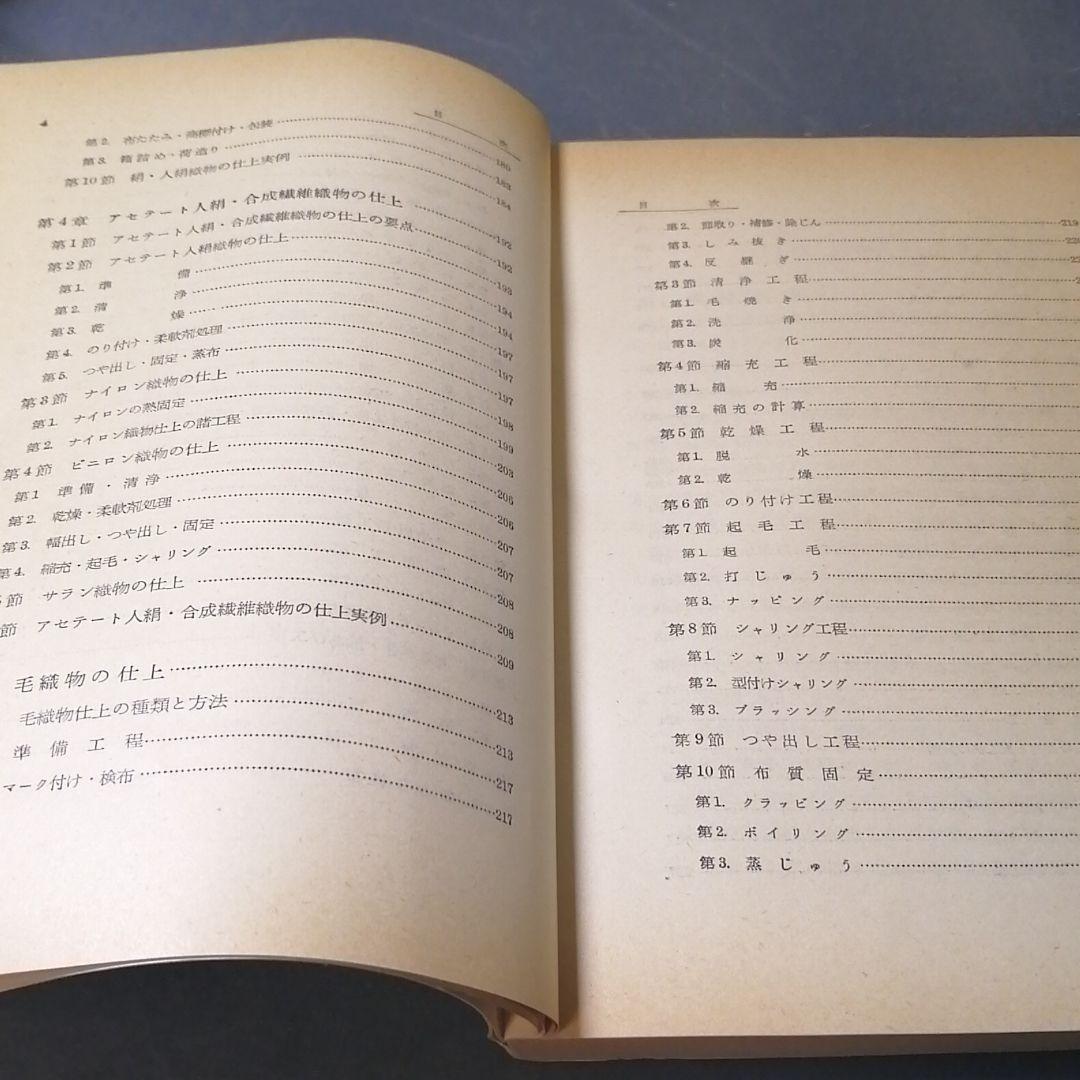 4
目 次
第2. たたみ・商標付け・包装 180
第3. 箱詰め・荷造り 183
第10節 絹・人絹織物の仕上実例 184
第4章 アセテート人絹・合成繊維織物の仕上 192
第1節 アセテート人絹・合成繊維織物の仕上の要点 192
第2節 アセテート人絹織物の仕上 193
第1. 準備 194
第2. 清浄 194
第3. 乾燥 197
第4. のり付け・柔軟剤処理 197
第5. つや出し・固定・蒸布 197
第3節 ナイロン織物の仕上 198
第1. ナイロンの熱固定 199
第2. ナイロン織物仕上の諸工程 203
第4節 ビニロン織物の仕上 206
第1 準備・清浄 206
第2. 乾燥・柔軟剤処理 207
第3. 幅出し・つや出し・固定 207
第4. 縮充・起毛・シャリング 208
節 サラン織物の仕上 208
節 アセテート人絹・合成繊維織物の仕上実例 209
毛織物の仕上 213
毛織物仕上の種類と方法 213
準備工程 217
マーク付け・検布 217
目 次
第2. 節取り・補修・除じん 219
第3. しみ抜き 22
第4. 反継ぎ 22
第3節 清浄工程 2
第1. 毛焼き
第2. 洗浄
第3. 炭化
第4節 縮充工程
第1. 縮充
第2. 縮充の計算
第5節 乾燥工程
第1. 脱水
第2. 乾燥
第6節 のり付け工程
第7節 起毛工程
第1. 起毛
第2. 打じゅう
第3. ナッピング
第8節 シャリング工程
第1. シャリング
第2. 型付けシャリング
第3. ブラッシング
第9節 つや出し工程
第10節 布質固定
第1. クラッビング
第2. ボイリング
第3. 蒸じゅう